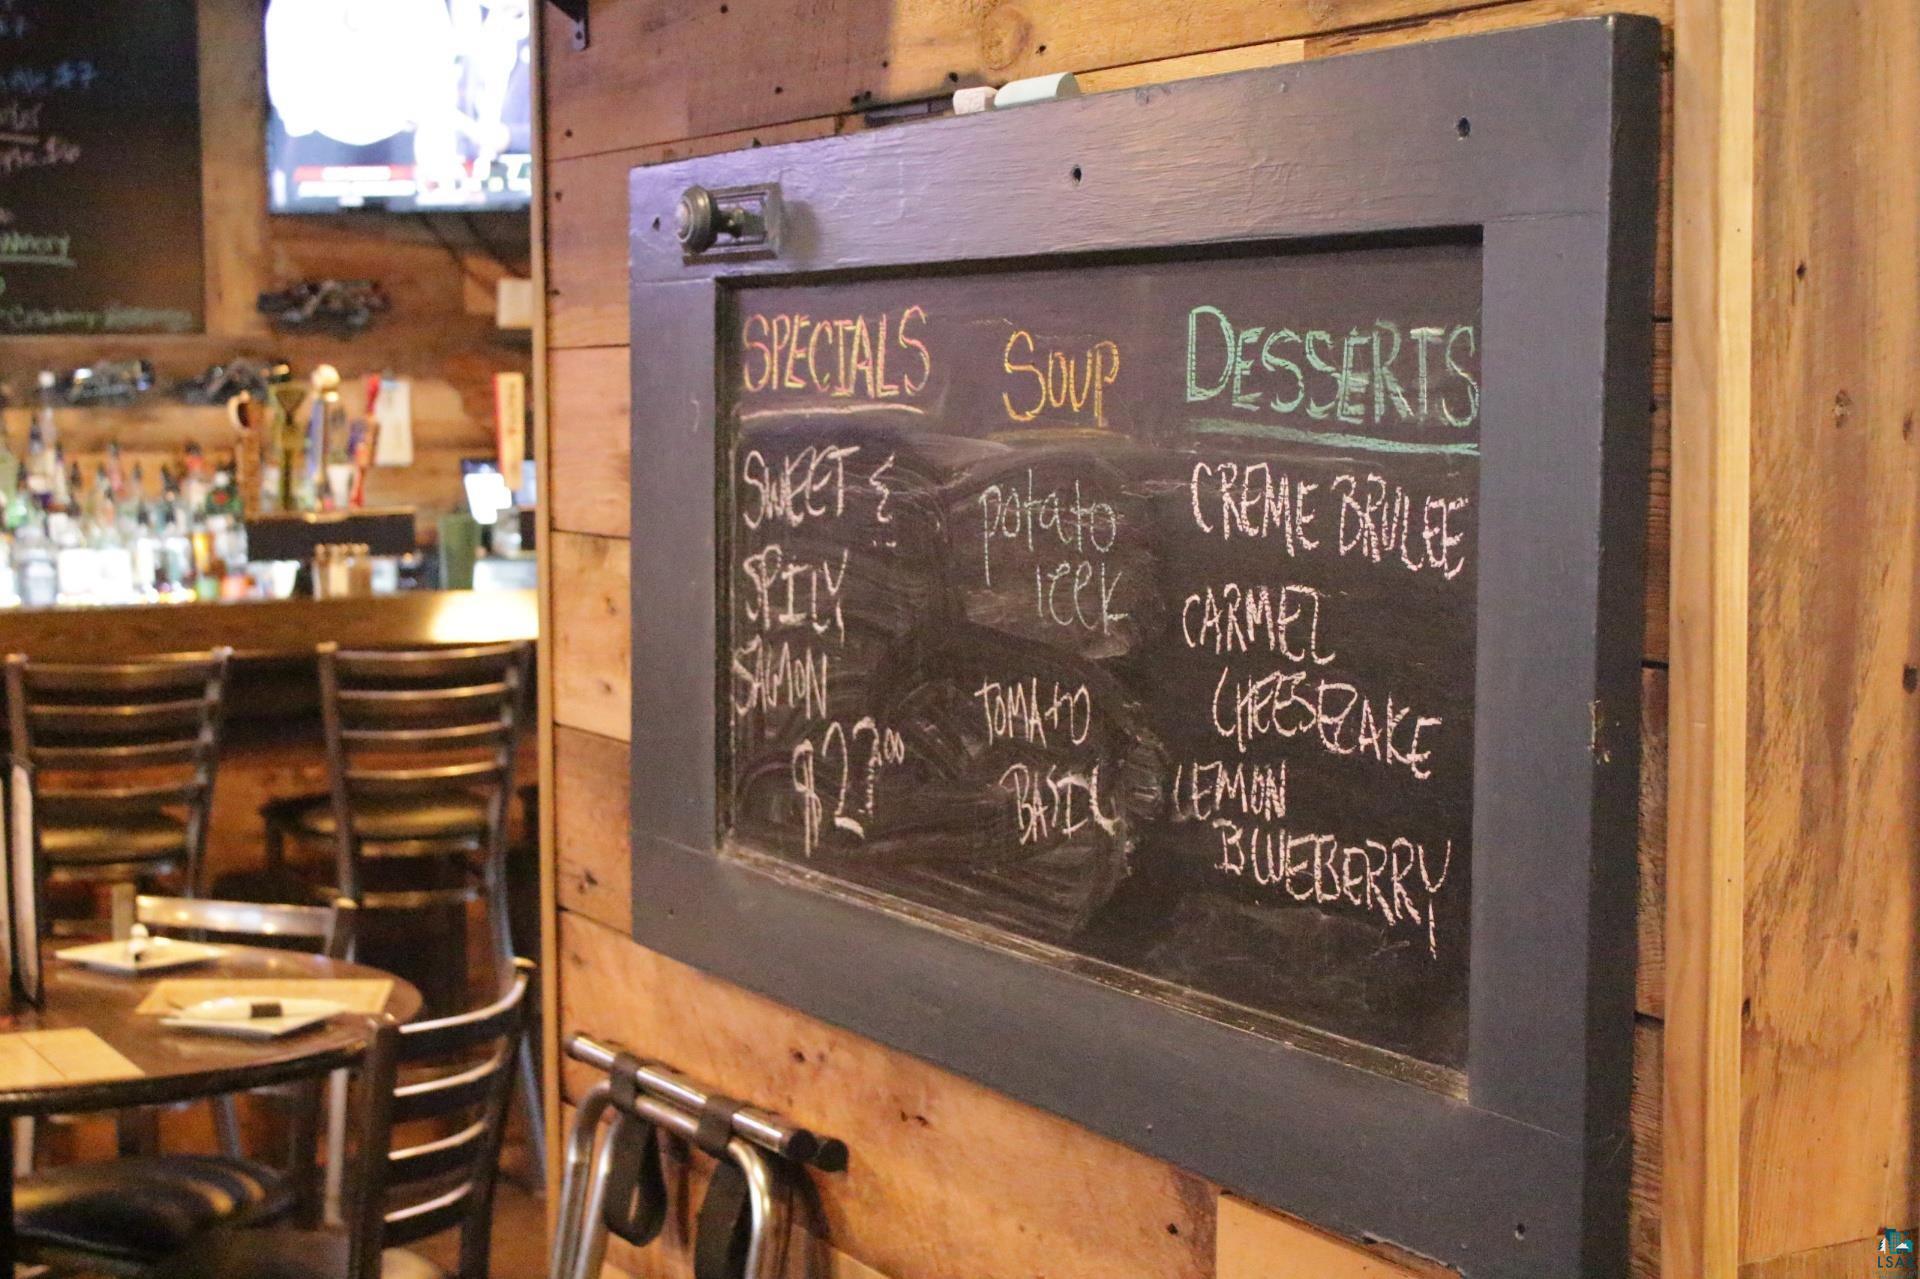 SPECIALS
SWEET &
SPICY
SALMON
$22.00
SOUP
potato
leek
TOMATO
BASIL
DESSERTS
CREME BRULEE
CARMEL
CHEESECAKE
LEMON
BLUEBERRY
Winery
LSA